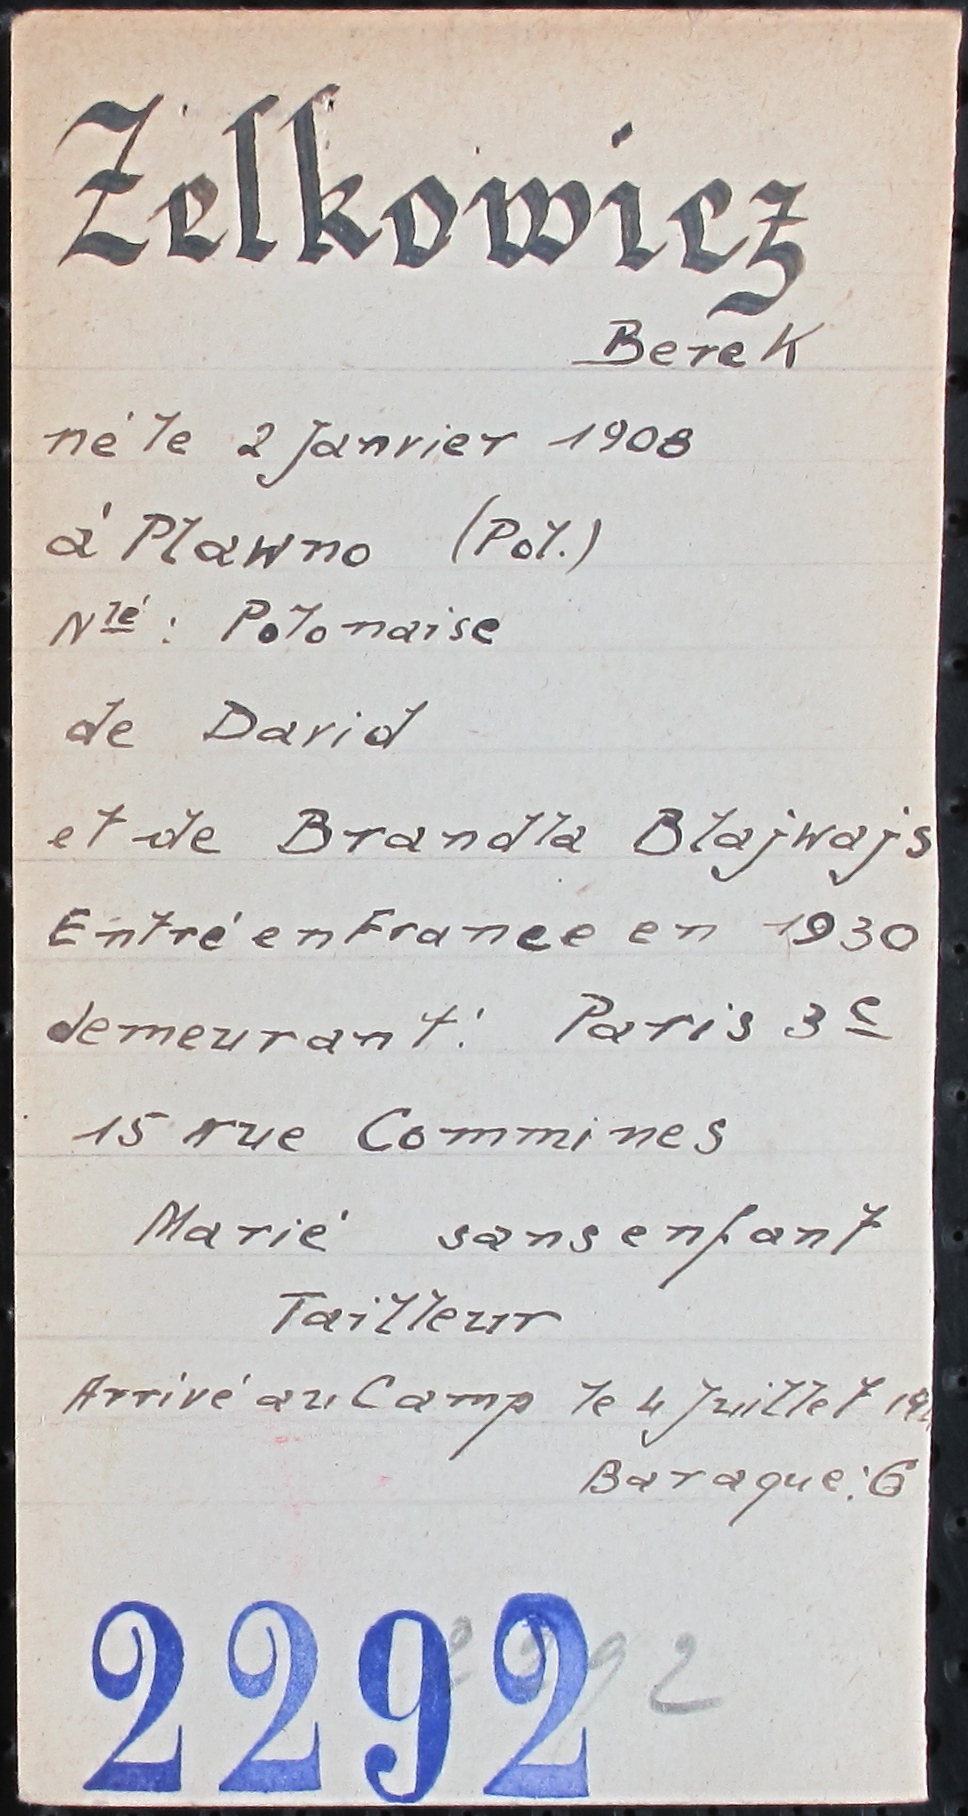 Zelkowicz
Berek
né le 2 Janvier 1908
à Plawno (Pol.)
Nlé : Polonaise
de David
et de Brandla Blajwajs
Entré en France en 1930
demeurant: Paris 3e
15 rue Commines
Marié sans enfant
Tailleur
Arrivé au Camp le 4 Juillet
Baraque: 6
2292
2292